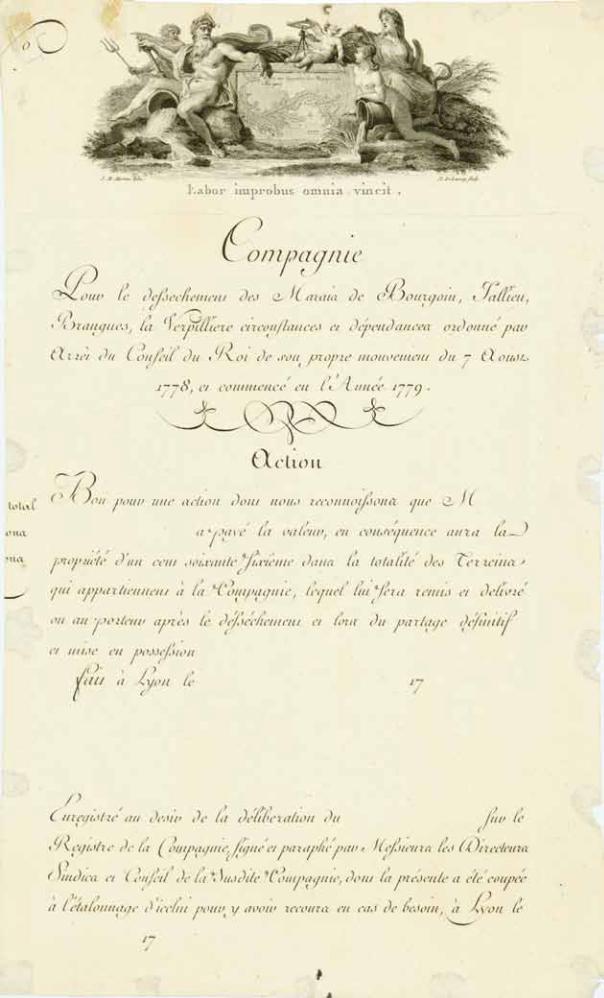 Labor improbus omnia vincit.
Compagnie
Pour le dessechement des Marais de Bourgoin, Jallieu,
Brangues, la Verpilliere circonstances et dépendances ordonné par
Arrêt du Conseil du Roi de son propre mouvement du 7 Aoust
1778, et commencé en l'Année 1779.
Action
Bon pour une action dont nous reconnoissons que M
a payé la valeur, en conséquence aura la
total
ons
propriété d'un cent soixante sixième dans la totalité des Terreins
qui appartiennent à la Compagnie, lequel lui sera remis et delivré
ou au porteur après le desséchement et lors du partage définitif
et mise en possession
fait à Lyon le 17
Enregistré au desir de la déliberation du sur le
Registre de la Compagnie, signé et paraphé par Messieurs les Directeurs
Sindics et Conseil de la Susdite Compagnie, dont la présente a été coupée
à l'étalonnage d'icelui pour y avoir recours en cas de besoin, à Lyon le
17